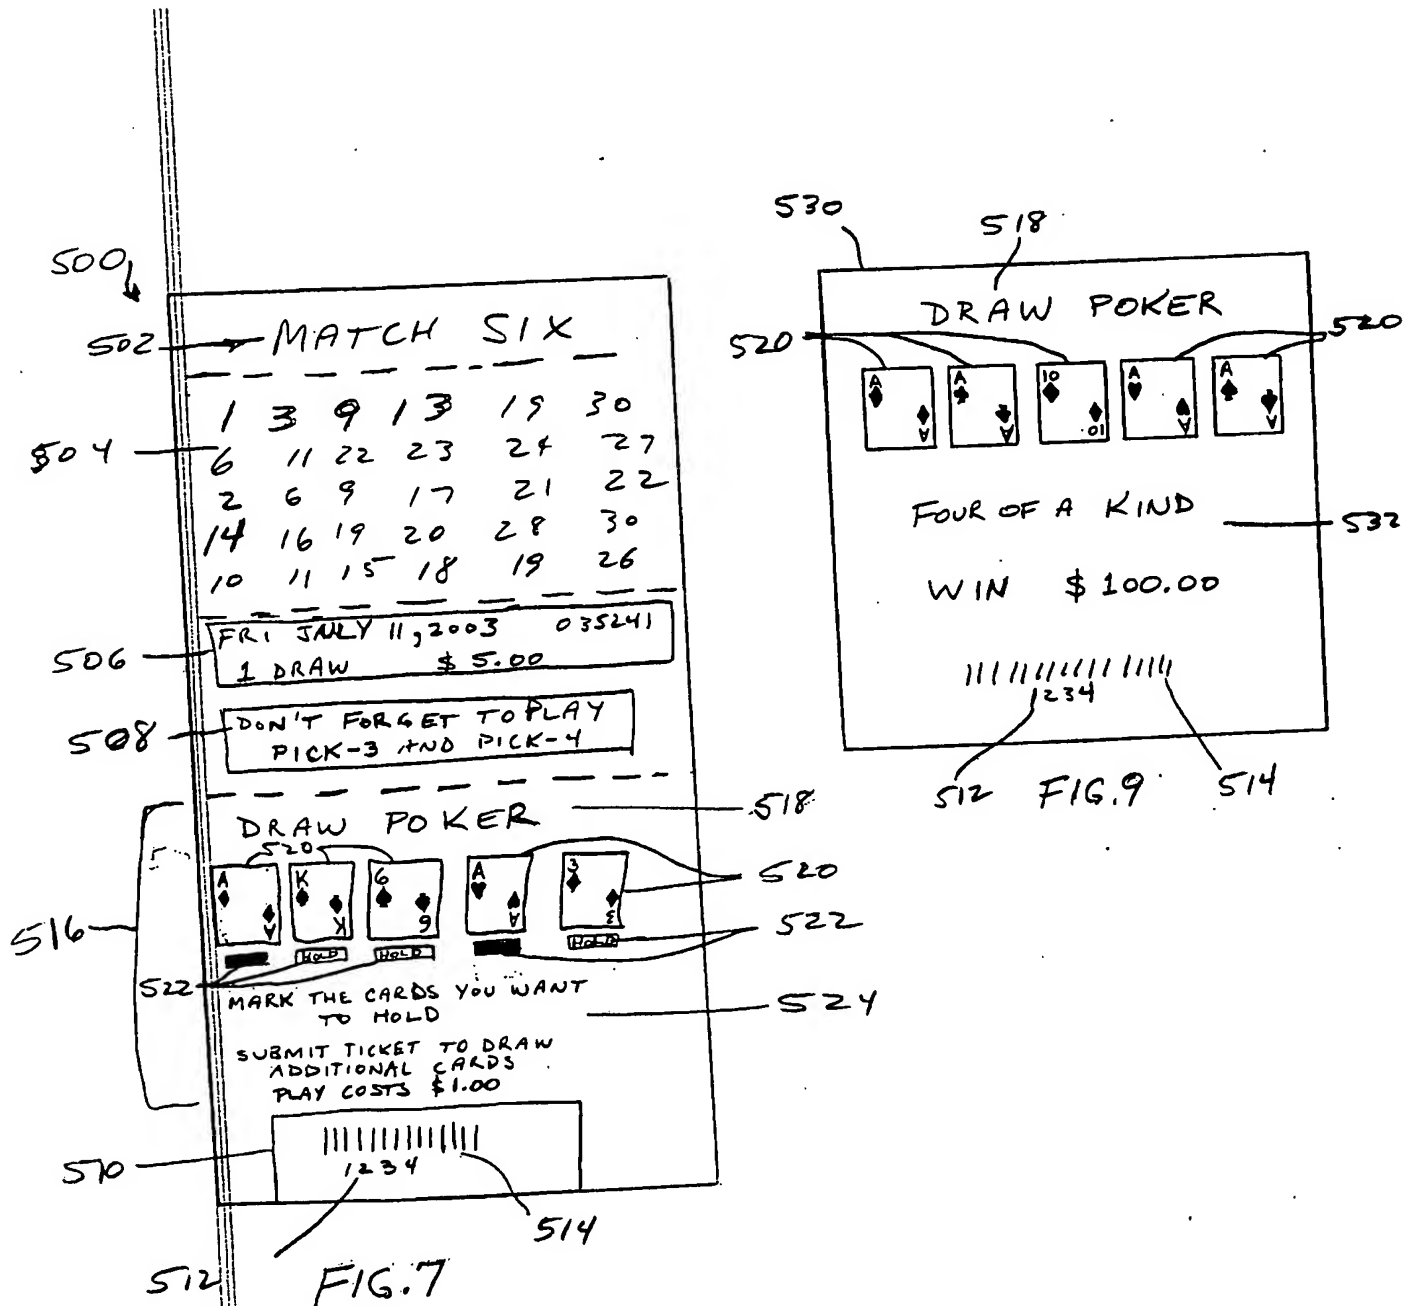 500
502 MATCH SIX
1 3 9 13 19 30
504 6 11 22 23 24 27
2 6 9 17 21 22
14 16 19 20 28 30
10 11 15 18 19 26
506 FRI JULY 11, 2003 035241
1 DRAW $ 5.00
508 DON'T FORGET TO PLAY
PICK-3 AND PICK-4
516
DRAW POKER 518
520
A K 6 A 3 520
A K 6 A 3
HOLD HOLD HOLD 522
522
MARK THE CARDS YOU WANT
TO HOLD 524
SUBMIT TICKET TO DRAW
ADDITIONAL CARDS
PLAY COSTS $1.00
510
1234
512 514
FIG.7
530 518
DRAW POKER
520 520
A A 10 A A
A A 10 A A
FOUR OF A KIND 532
WIN $ 100.00
1234
512 FIG.9 514